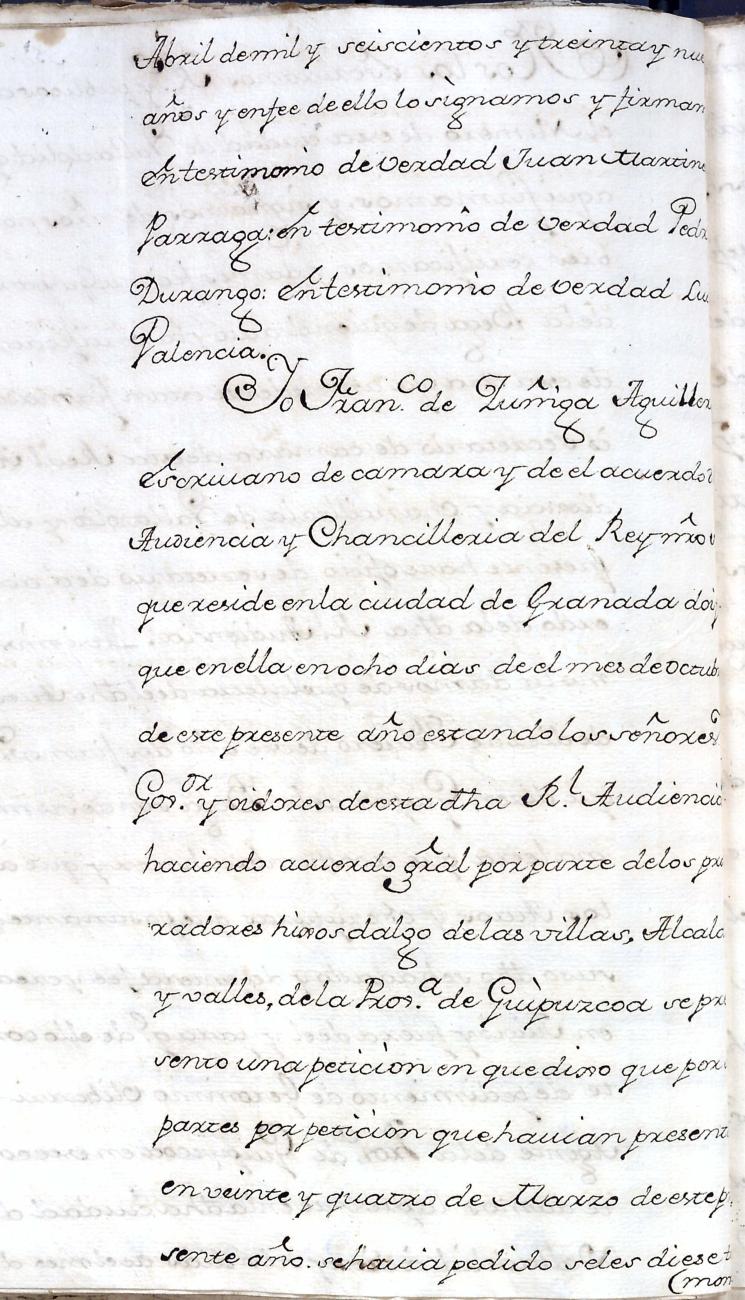 Abril de mil y seiscientos y treinta y nue
años y enfee de ello lo signamos y firmam
En testimonio de verdad Juan Martine
Parraga: En testimonio de verdad Pedr
Durango: En testimonio de verdad Lu
Palencia.
Yo Fran.co de Zuñiga Aguiller
Escriuano de camara y de el acuerdo
Audiencia y Chancilleria del Rey nro
que reside en la ciudad de Granada doi
que en ella en ocho dias de el mes de octub
de este presente año estando los señores
Gov.or y oidores de esta dha R.l Audiencia
haciendo acuerdo gral por parte de los pro
radores hixos dalgo de las villas, Alcal
y valles, de la Prov.a de Guipuzcoa se pre
sento una peticion en que dixo que por
partes por peticion que hauian present
en veinte y quatro de Marzo de este p
sente año. se hauia pedido seles diese t
(mon